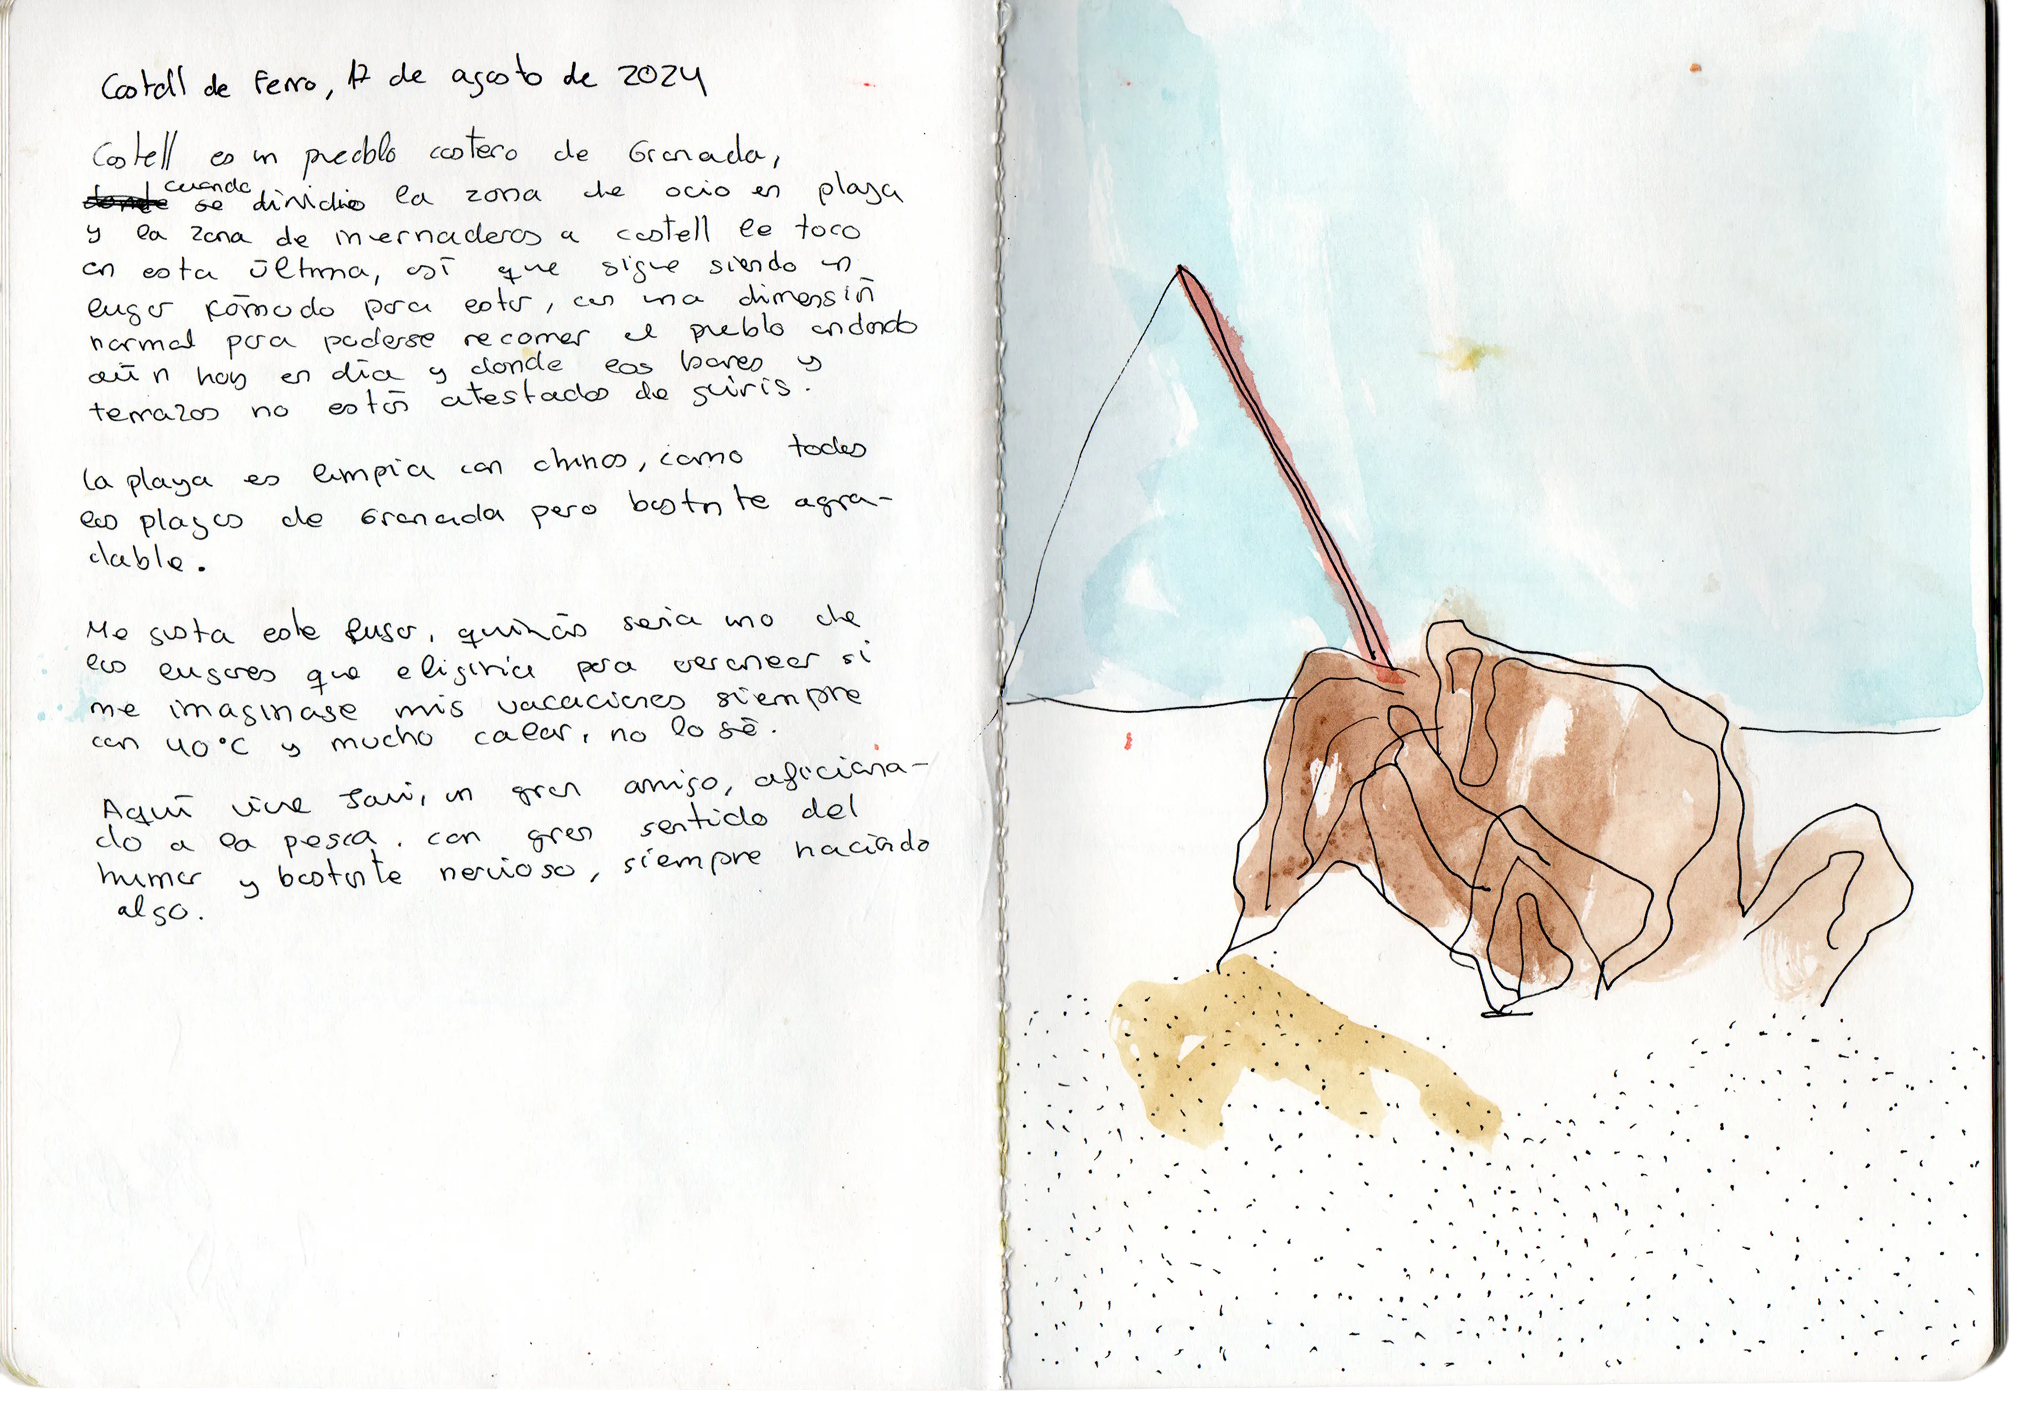 Castell de Ferro, 17 de agosto de 2024
Castell es un pueblo costero de Granada,
donde cuando se dividio la zona de ocio en playa
y la zona de invernaderos a castell le toco
en esta última, así que sigue siendo un
lugar kómodo para estar, con una dimensión
normal para poderse recorrer el pueblo andando
aún hoy en día y donde los bares y
terrazas no están atestados de guiris.
La playa es limpia con chinos, como todas
las playas de Granada pero bastante agra-
dable.
Me gusta este lugar, quizás seria uno de
los lugares que eligiria para veranear si
me imaginase mis vacaciones siempre
con 40°C y mucho calor, no lo sé.
Aquí vive Javi, un gran amigo, aficiona-
do a la pesca. con gran sentido del
humor y bastante nervioso, siempre haciendo
algo.